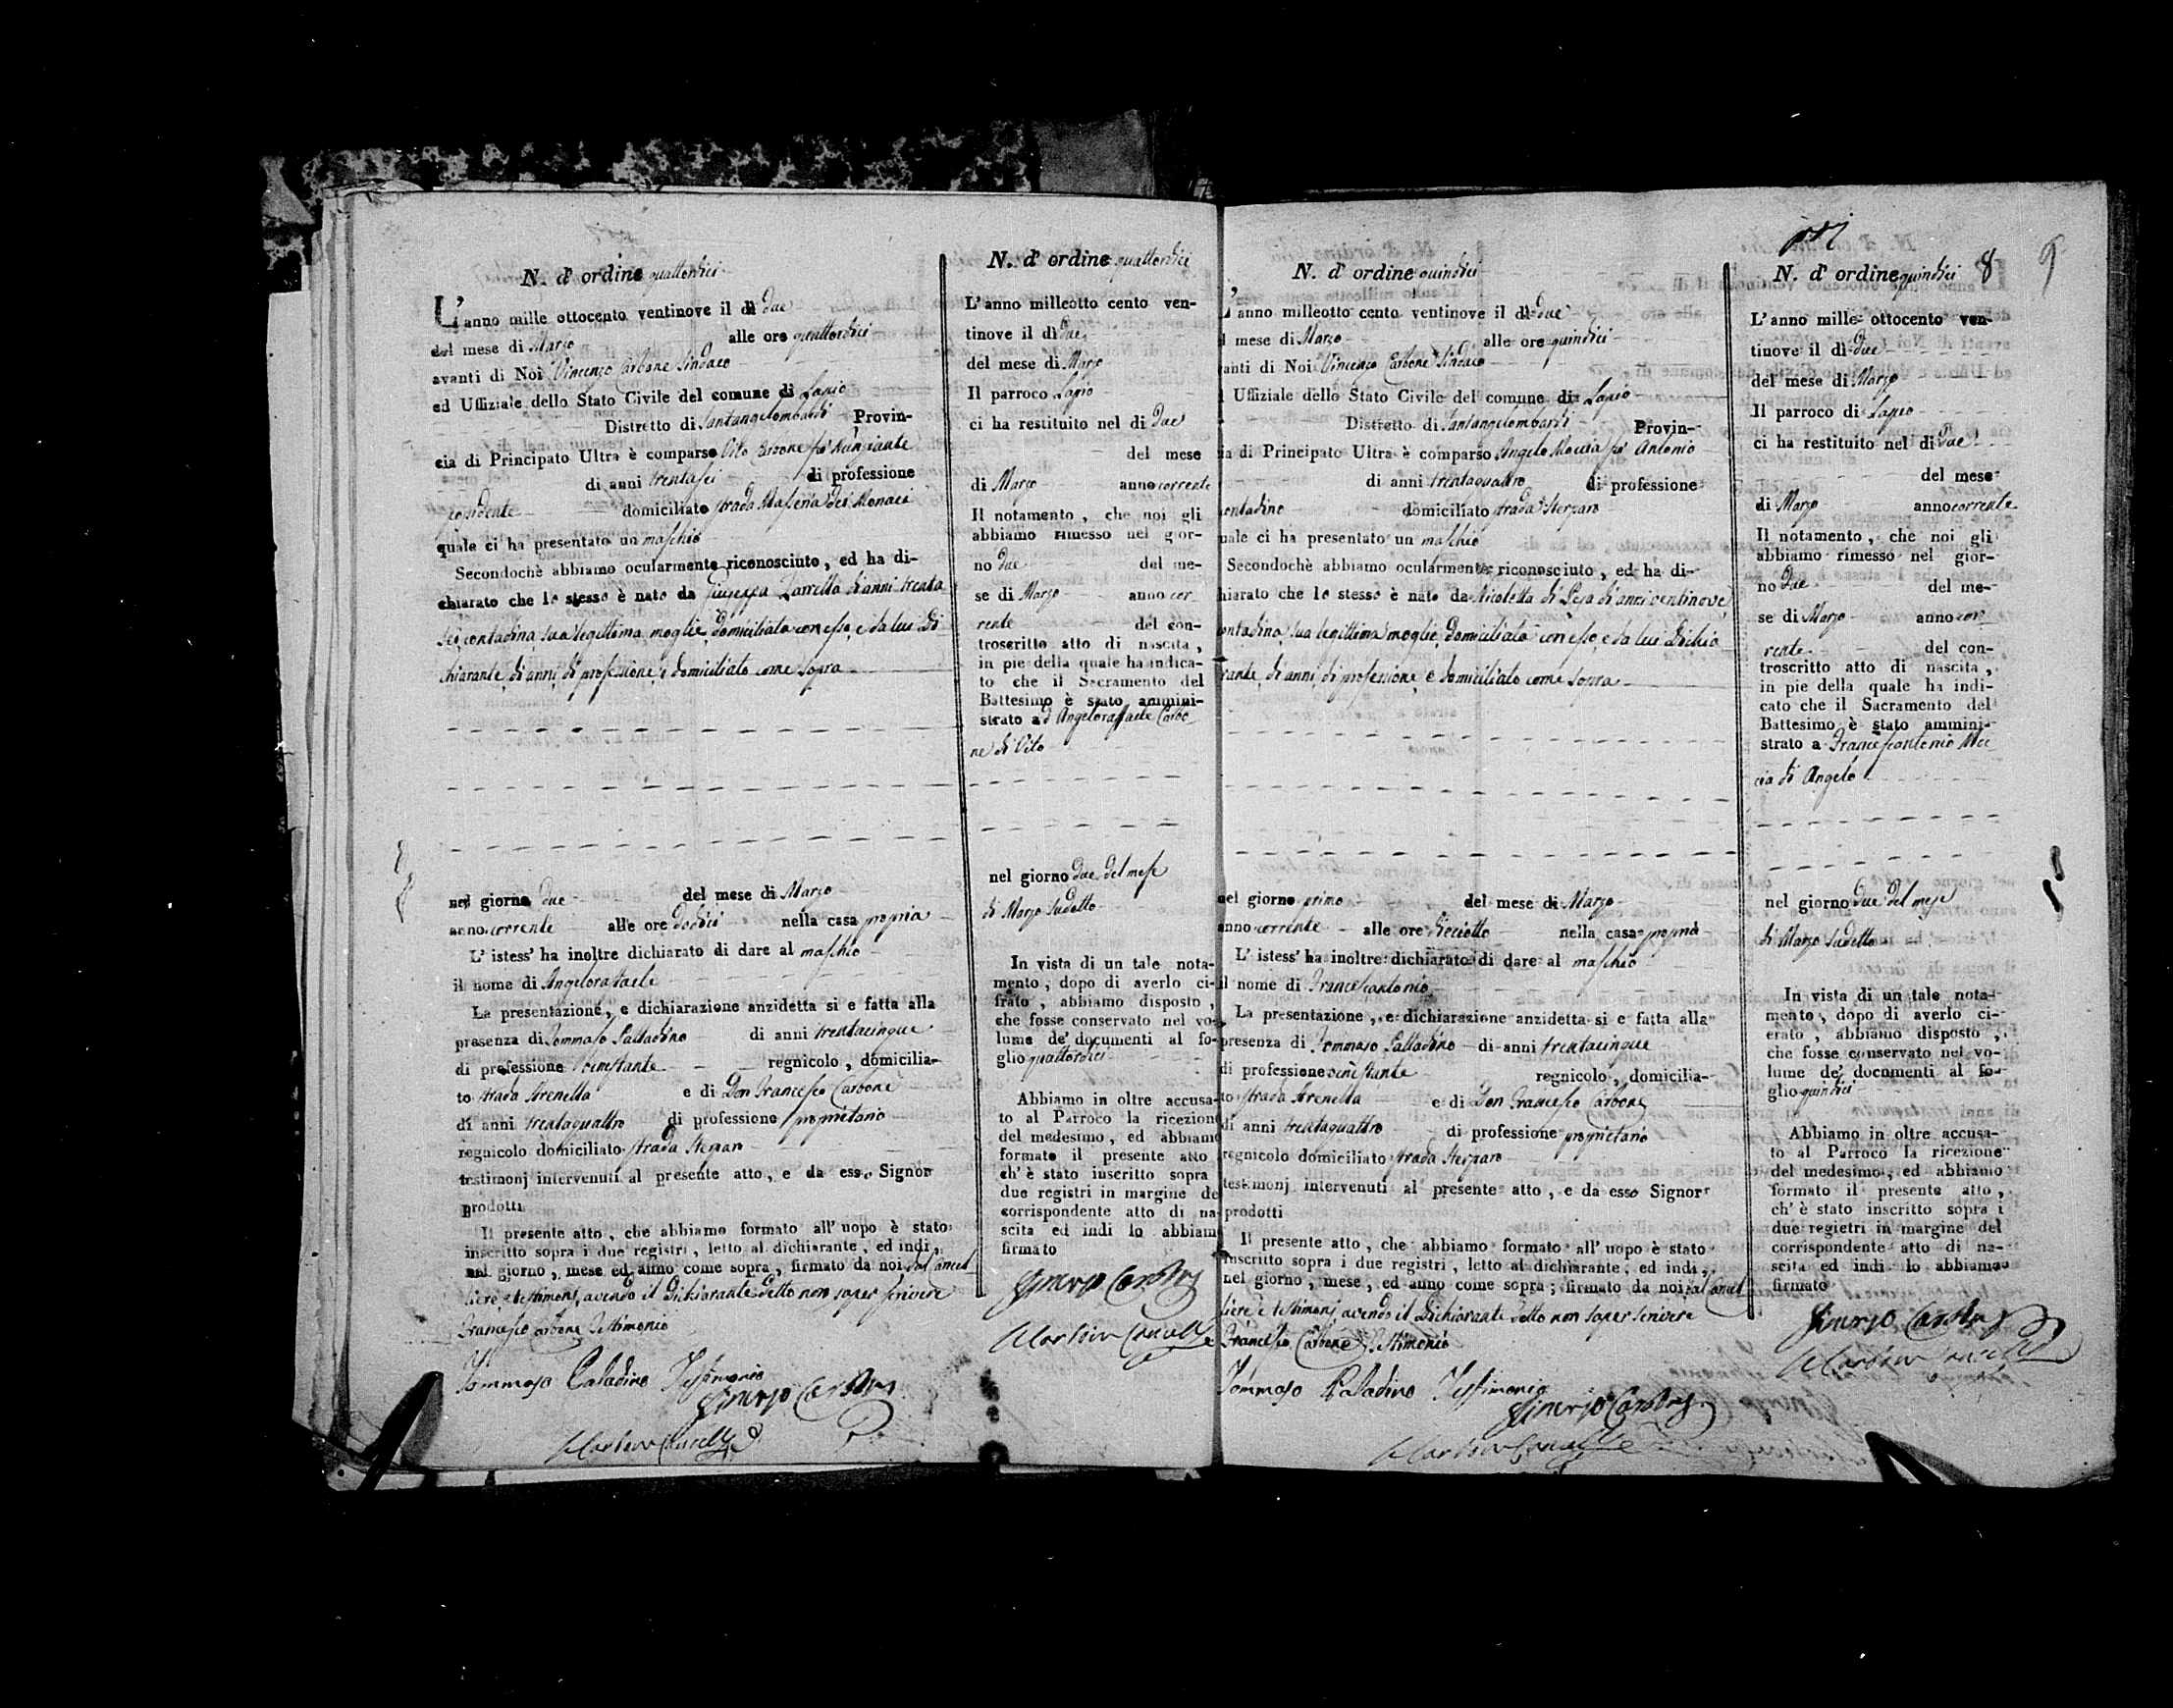 N. d' ordine quattordici
L'anno mille ottocento ventinove il dì due
del mese di Marzo alle ore quattordici
avanti di Noi Vincenzo Carbone Sindaco
ed Uffiziale dello Stato Civile del comune di Lapio
Distretto di Santangelombardi Provin-
cia di Principato Ultra è comparso Vito Carbone fu Nunziante
di anni trentasei di professione
possidente domiciliato strada Masseria dei Monaci
quale ci ha presentato un maschio
Secondochè abbiamo ocularmente riconosciuto, ed ha di-
chiarato che lo stesso è nato da Giuseppa Zarrella di anni trenta
sei, contadina, sua legittima moglie, domiciliata con esso, e da lui di
chiarante, di anni, di professione, e domiciliato come sopra
nel giorno due del mese di Marzo
anno corrente alle ore dodici nella casa propria
L' istess' ha inoltre dichiarato di dare al maschio
il nome di Angeloraffaele
La presentazione, e dichiarazione anzidetta si e fatta alla
presenza di Tommaso Palladino di anni trentacinque
di professione regnicolo, domicilia-
to strada Arenella e di Don Francesco Carbone
di anni trentaquattro di professione proprietario
regnicolo domiciliato strada Sterparo
testimonj intervenuti al presente atto, e da esso Signor
prodotti
Il presente atto, che abbiamo formato all' uopo è stato
inscritto sopra i due registri, letto al dichiarante, ed indi,
nel giorno, mese ed anno come sopra, firmato da noi, dal Cancel
liere, e testimonj, avendo il Dichiarante detto non saper scrivere
Francesco Carbone Testimonio
Tommaso Paladino Testimonio
N. d' ordine quattordici
L'anno milleotto cento ven-
tinove il dì due
del mese di Marzo
Il parroco Lapio
ci ha restituito nel di due
del mese
di Marzo anno corrente
Il notamento, che noi gli
abbiamo rimesso nel gior-
no due del me-
se di Marzo anno cor
rente del con-
troscritto atto di nascita,
in pie della quale ha indica-
to che il Sacramento del
Battesimo è stato ammini-
strato ad Angeloraffaele Carbo
ne di Vito
nel giorno due del mese
di Marzo sudetto
In vista di un tale nota-
mento, dopo di averlo ci-
frato, abbiamo disposto,
che fosse conservato nel vo-
lume de' documenti al fo-
glio quattordici
Abbiamo in oltre accusa-
to al Parroco la ricezione
del medesimo, ed abbiamo
formato il presente atto
ch' è stato inscritto sopra
due registri in margine de
corrispondente atto di na
scita ed indi lo abbiam
firmato
N. d' ordine quindici
L'anno milleotto cento ventinove il dì due
l mese di Marzo alle ore quindici
vanti di Noi Vincenzo Carbone Sindaco
Uffiziale dello Stato Civile del comune di Lapio
Distretto di Santangelombardi Provin-
ia di Principato Ultra è comparso Angelo Moccia fu Antonio
di anni trentaquattro di professione
contadino domiciliato strada Sterparo
uale ci ha presentato un maschio
Secondochè abbiamo ocularmente riconosciuto, ed ha di-
hiarato che lo stesso è nato da Nicoletta di Pesa di anni ventinove,
contadina, sua legittima moglie, domiciliata con esso, e da lui dichia
rante, di anni, di professione, e domiciliato come sopra
nel giorno primo del mese di Marzo
anno corrente alle ore diciotto nella casa propria
L' istess' ha inoltre dichiarato di dare al maschio
il nome di Francescantonio
La presentazione, e dichiarazione anzidetta si e fatta alla
presenza di Tommaso Palladino di anni trentacinque
di professione regnicolo, domicilia-
to strada Arenella e di Don Francesco Carbone
di anni trentaquattro di professione proprietario
regnicolo domiciliato strada Sterparo
testimonj intervenuti al presente atto, e da esso Signor
prodotti
Il presente atto, che abbiamo formato all' uopo è stato
inscritto sopra i due registri, letto al dichiarante, ed indi,
nel giorno, mese, ed anno come sopra; firmato da noi, dal Cancel
liere e testimonj, avendo il Dichiarante detto non saper scrivere
Francesco Carbone Testimonio
Tommaso Paladino Testimonio
8 9
N. d' ordine quindici
L'anno mille ottocento ven-
tinove il dì due
del mese di Marzo
Il parroco di Lapio
ci ha restituito nel di due
del mese
di Marzo anno corrente
Il notamento, che noi gli
abbiamo rimesso nel gior-
no due del me-
se di Marzo anno cor
rente del con-
troscritto atto di nascita,
in pie della quale ha indi-
cato che il Sacramento del
Battesimo è stato ammini-
strato a Francescantonio Moc
cia di Angelo
nel giorno due del mese
di Marzo sudetto
In vista di un tale nota-
mento, dopo di averlo ci-
erato, abbiamo disposto,
che fosse conservato nel vo-
lume de' documenti al fo-
glio quindici
Abbiamo in oltre accusa-
to al Parroco la ricezione
del medesimo, ed abbiamo
formato il presente atto,
ch' è stato inscritto sopra i
due regietri in margine del
corrispondente atto di na-
scita ed indi lo abbiamo
firmato